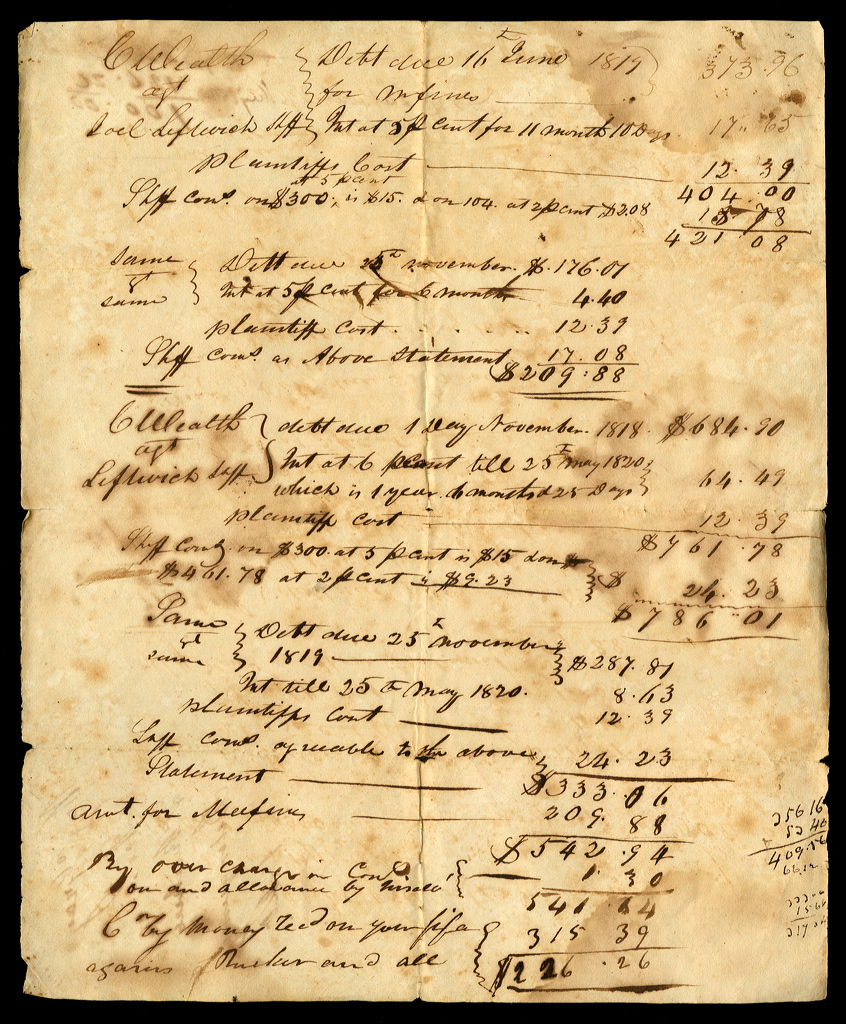 CWealth Debt due 16th June 1819 373.96
agt for mfines
Joel Leftwich Shff Int at 5 p Cent for 11 month 10 Days 17..65
Plaintiffs Cost 12.39
404.00
at 5 p cent
Shff Coms. on $300. is $15. & on 104. at 2 p cent $2.08
421.08
same Debt due 25th november. $.176.01
vs
same Int at 5 p Cent for 6 month 4.40
plaintiff Cost 12.39
Shff Coms. as Above Statement 17.08
$209.88
CWealth debt due 1 Day November. 1818. $684.90
agt
Leftwich Shff Int at 6 p cent till 25th may 1820
which is 1 year 6 months & 25 Days 64.49
plaintiff Cost 12.39
$761.78
Shff Coms. on $300. at 5 p Cent is $15 & on
$461.78 at 2 p Cent is $9.23 $24.23
$786.01
Same Debt due 25th november
vs
same 1819 $287.81
Int till 25th may 1820. 8.63
plaintiffs Cost 12.39
Shff Coms. agreeable to the above
Statement 24.23
$333.06
amt. for Mfines 209.88
$542.94
By over charge in Coms
on and allowance by 1.30
541.64
By money recd on your fifa 315 39
against Rucker and all $226.26
356 16
53 40
409.56